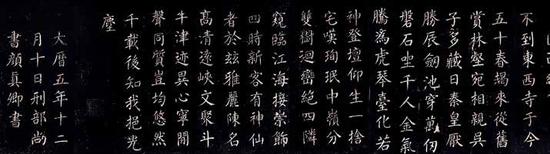 不到東西寺于今
五十春朅來從舊
賞林壑宛相親吳
子多藏日秦皇厭
勝辰劒池穿萬仞
磐石坐千人金氣
騰為虎琴臺化若
神登壇仰生一捨
宅嘆珣珉中嶺分
雙樹迴巒絕四隣
窺臨江海接崇飾
四時新客有神仙
者於茲雅麗陳名
高清遠峽文聚斗
牛津迹異心寧間
聲同質豈均悠然
千載後知我挹光
塵
大曆五年十二
月十日刑部尚
書顏真卿書